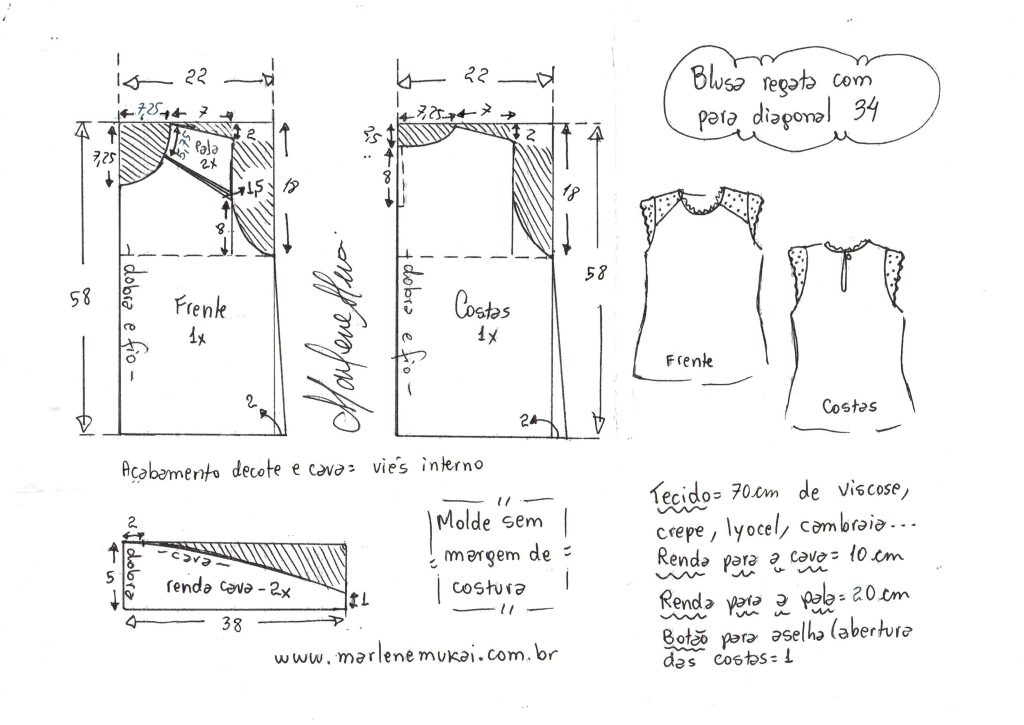 Blusa regata com
para diagonal 34
22
7,25
7
2
5,75
Pala
2x
7,25
1,5
18
8
58
dobra e fio
Frente
1x
2
MarleneMukai
22
7,25
7
2
8
18
58
dobra e fio
Costas
1x
2
Frente
Costas
Acabamento decote e cava= viés interno
2
cava
5
dobra
renda cava - 2x
1
38
Molde sem
margem de
costura
Tecido= 70cm de viscose,
crepe, lyocel, cambraia...
Renda para a cava= 10cm
Renda para a pala= 20cm
Botão para aselha (abertura
das costas=1
www.marlenemukai.com.br